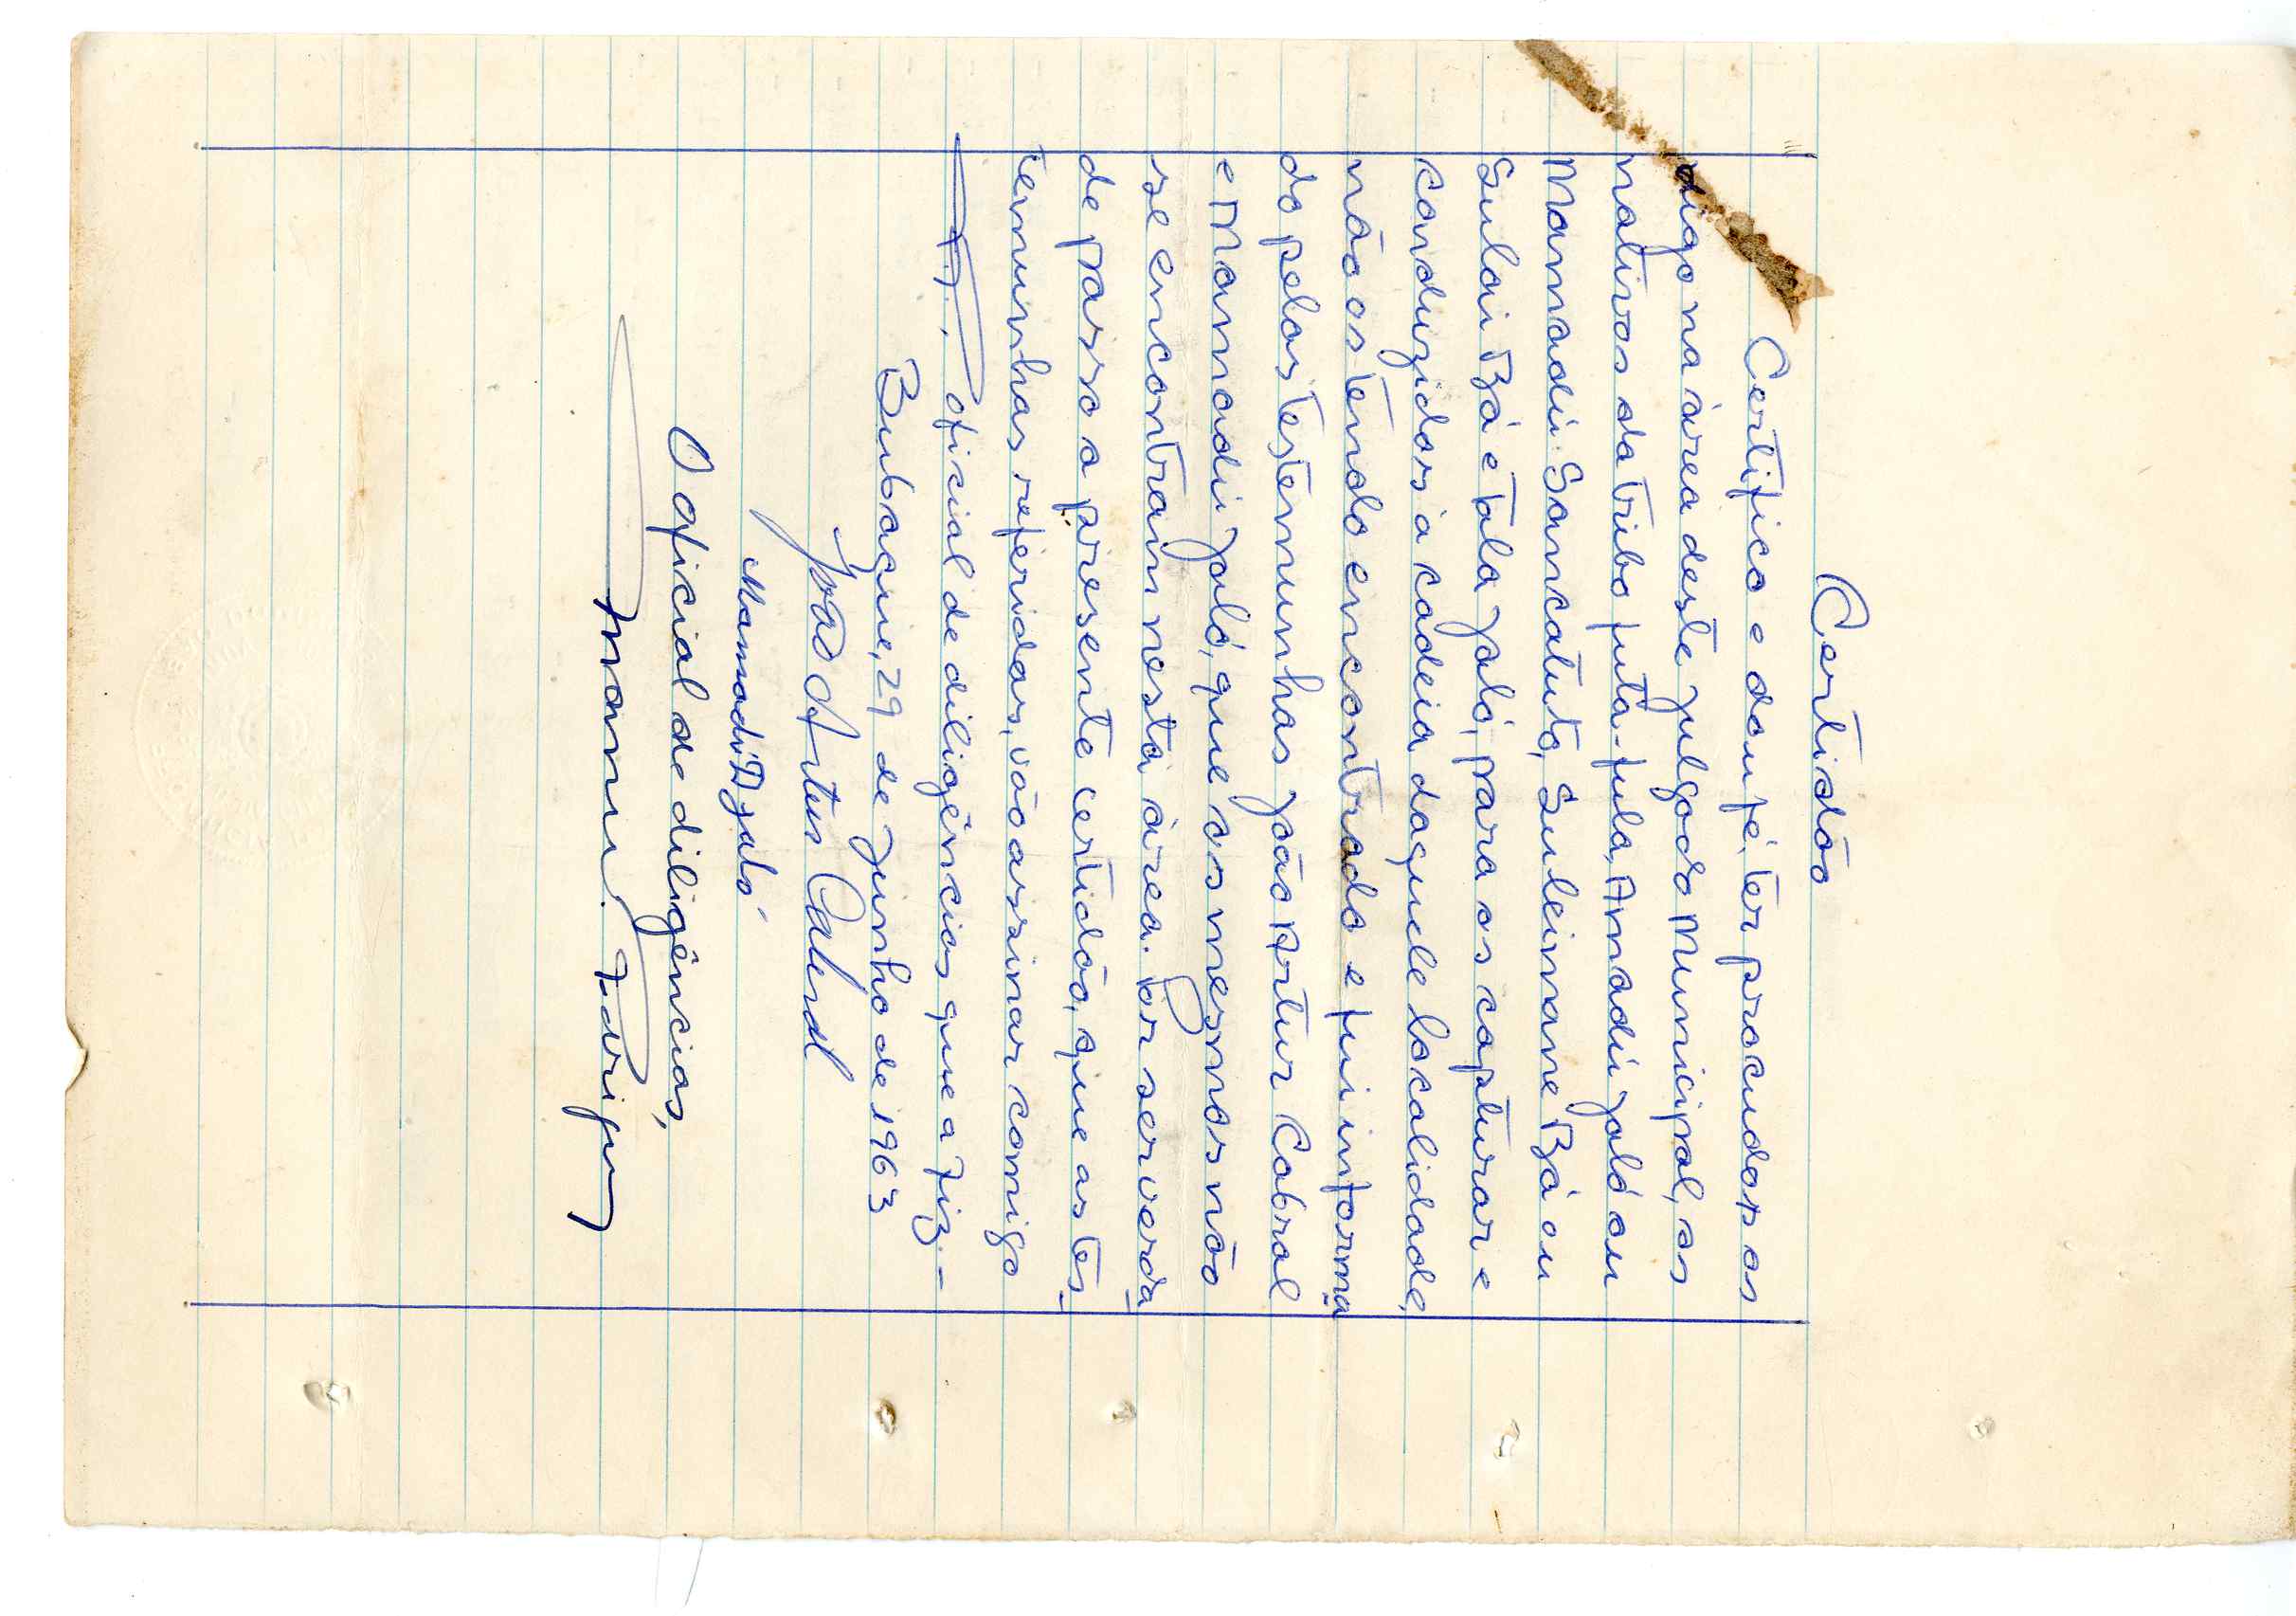 Certidão
Certifico e dou fé, ter procudos os
digo na àrea deste julgado Municipal, os
nativos da tribo futa-fula, Amadú jaló ou
Mamadú Sancatuto, Suleimane Bá ou
Sulai Bá e Tala jaló, para os capturar e
conduzidos à cadeia daquele localidade,
não os tendo encontrado e fui informa
do pelas testemunhas João Artur Cabral
e Mamadú jaló, que os mesmos não
se encontram nesta àrea. Por ser verda
de passo a presente certidão, que as tes_
temunhas referidas, vão assinar comigo
oficial de diligências que a fiz.-
Bubaque, 29 de Junho de 1963
João Artur Cabral
Mamadú Djaló
O oficial de diligências,